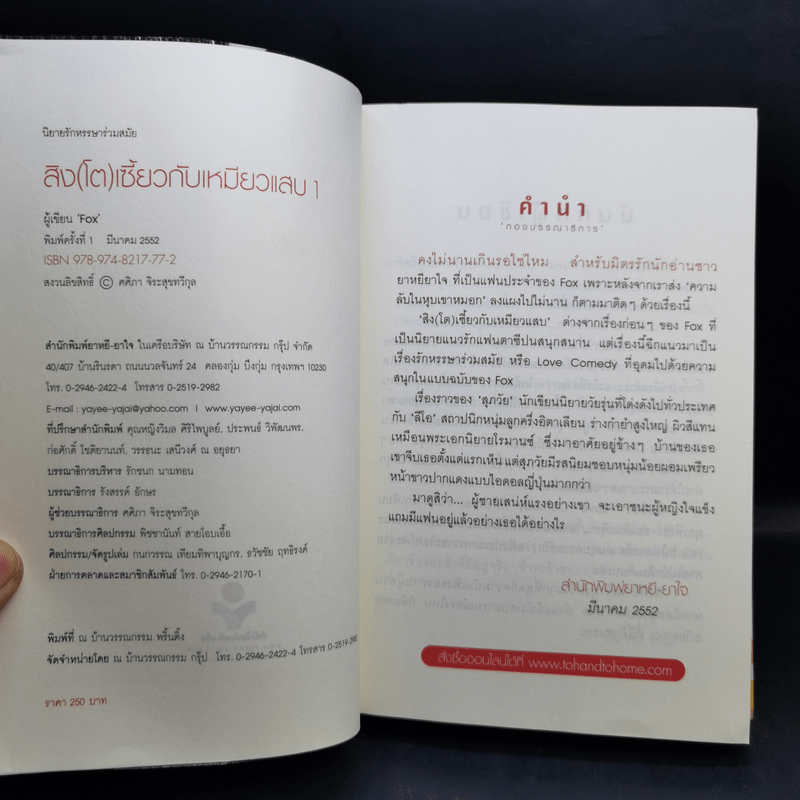 นิยายรักหรรษาร่วมสมัย
สิง(โต)เซี้ยวกับเหมียวแสบ 1
ผู้เขียน 'Fox'
พิมพ์ครั้งที่ 1 มีนาคม 2552
ISBN 978-974-8217-77-2
สงวนลิขสิทธิ์ © ศศิภา จิระสุขทวีกุล
สำนักพิมพ์ยาหยี-ยาใจ ในเครือบริษัท ณ บ้านวรรณกรรม กรุ๊ป จำกัด
40/407 บ้านรินรดา ถนนนวลจันทร์ 24 คลองกุ่ม บึงกุ่ม กรุงเทพฯ 10230
โทร. 0-2946-2422-4 โทรสาร 0-2519-2982
E-mail : yayee-yajai@yahoo.com | www.yayee-yajai.com
ที่ปรึกษาสำนักพิมพ์ คุณหญิงวิมล ศิริไพบูลย์. ประพนธ์ วิพัฒนพร.
ก่อศักดิ์ โชติยานนท์. วรรธนะ เสนีวงศ์ ณ อยุธยา
บรรณาธิการบริหาร รักชนก นามทอน
บรรณาธิการ รังสรรค์ อักษร
ผู้ช่วยบรรณาธิการ ศศิภา จิระสุขทวีกุล
บรรณาธิการศิลปกรรม พิชชานันท์ สายโอบเอื้อ
ศิลปกรรม/จัดรูปเล่ม กนกวรรณ เทียมทิพาบุญกร. ธวัชชัย ฤทธิรงค์
ฝ่ายการตลาดและสมาชิกสัมพันธ์ โทร. 0-2946-2170-1
พิมพ์ที่ ณ บ้านวรรณกรรม พริ้นติ้ง
จัดจำหน่ายโดย ณ บ้านวรรณกรรม กรุ๊ป โทร. 0-2946-2422-4 โทรสาร 0-2519-2982
ราคา 250 บาท
คำนำ
"กองบรรณาธิการ"
คงไม่นานเกินรอใช่ไหม สำหรับมิตรรักนักอ่านชาว
ยาหยียาใจ ที่เป็นแฟนประจำของ Fox เพราะหลังจากเราส่ง 'ความ
ลับในหุบเขาหมอก' ลงแผงไปไม่นาน ก็ตามมาติดๆ ด้วยเรื่องนี้
'สิง(โต)เซี้ยวกับเหมียวแสบ' ต่างจากเรื่องก่อนๆ ของ Fox ที่
เป็นนิยายแนวรักแฟนตาซีปนสนุกสนาน แต่เรื่องนี้ฉีกแนวมาเป็น
เรื่องรักหรรษาร่วมสมัย หรือ Love Comedy ที่อุดมไปด้วยความ
สนุกในแบบฉบับของ Fox
เรื่องราวของ 'สุภวัย' นักเขียนนิยายวัยรุ่นที่โด่งดังไปทั่วประเทศ
กับ 'ลีโอ' สถาปนิกหนุ่มลูกครึ่งอิตาเลียน ร่างกำยำสูงใหญ่ ผิวสีแทน
เหมือนพระเอกนิยายโรมานซ์ ซึ่งมาอาศัยอยู่ข้างๆ บ้านของเธอ
เขาจีบเธอตั้งแต่แรกเห็น แต่สุภวัยมีรสนิยมชอบหนุ่มน้อยผอมเพรียว
หน้าขาวปากแดงแบบไอดอลญี่ปุ่นมากกว่า
มาดูสิว่า... ผู้ชายเสน่ห์แรงอย่างเขา จะเอาชนะผู้หญิงใจแข็ง
แถมมีแฟนอยู่แล้วอย่างเธอได้อย่างไร
สำนักพิมพ์ยาหยี-ยาใจ
มีนาคม 2552
สั่งซื้อออนไลน์ได้ที่ www.tohandtohome.com